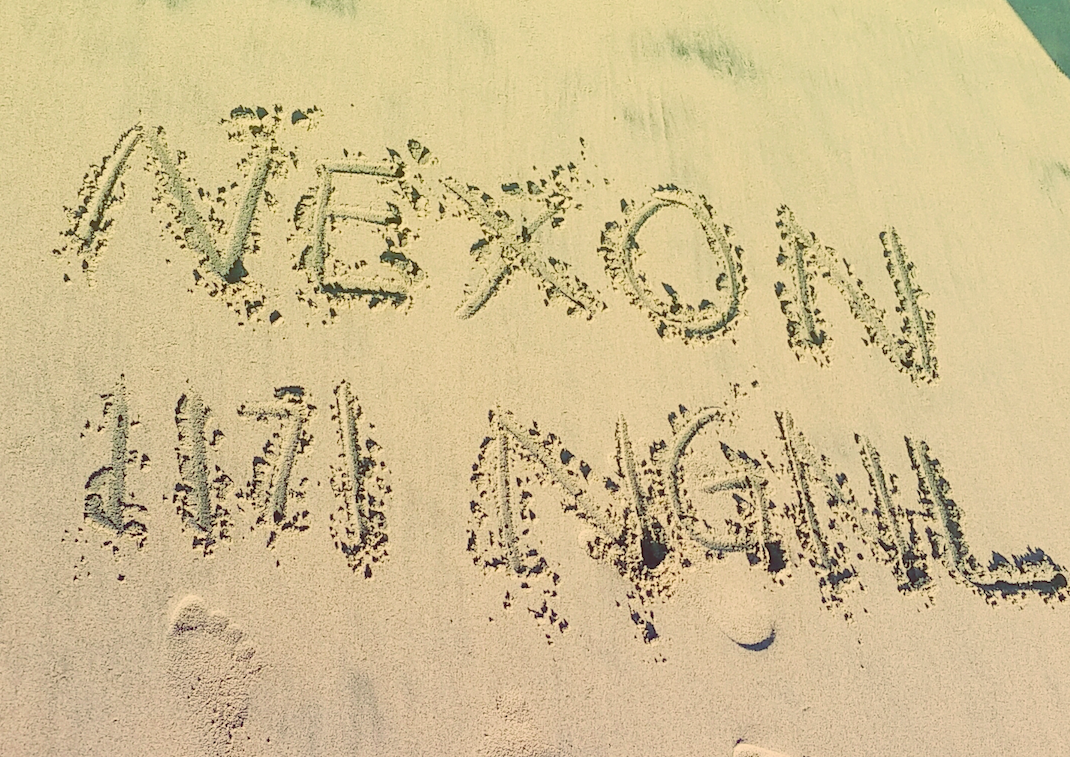 NEXON
1171 NGNL